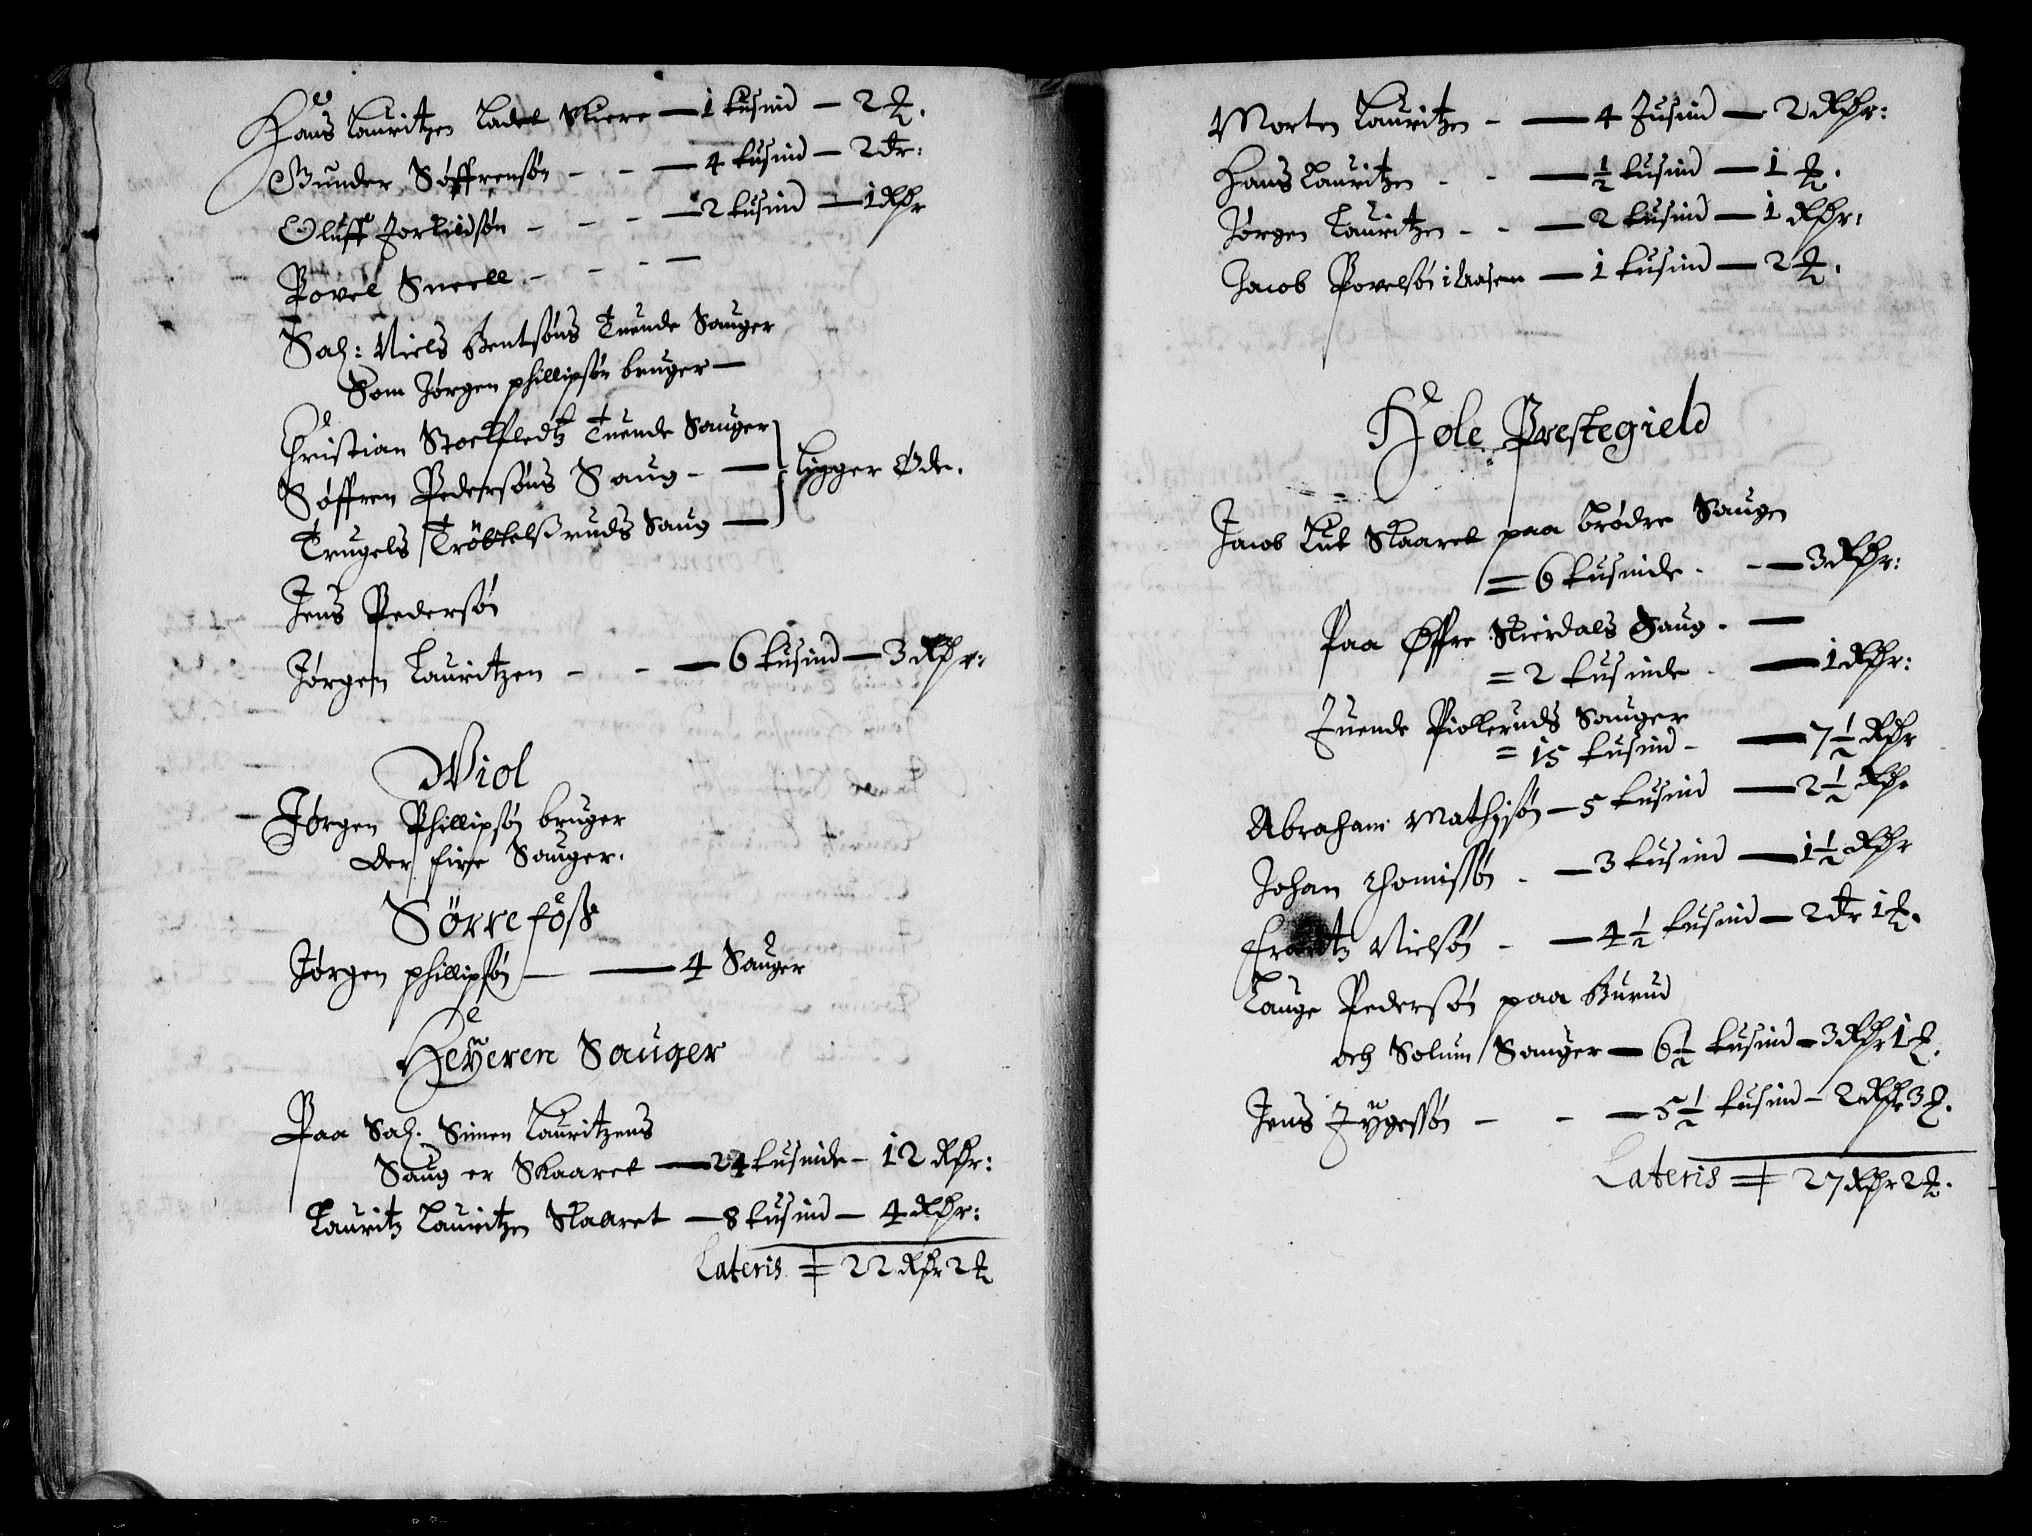 Hans Lauritzen Ladet Skiere — 1 tusind — 2 ℔.
Gunder Søffrensøn - - — 4 tusind — 2 dr:
Oluff Jorluidsøn - - - — 2 tusind — 1 Rdr
Povel Snell - - - —
Sal: Niels Bentsøns Tuende Sauger
Som Jørgen phillipsøn bruger —
Christian Stockfledtz Tuende Sauger
Søffren Pedersøns Saug - — ligger Øde.
Trugels Trøbtelsruds Saug —
Jens Pedersøn
Jørgen Lauritzen - - — 6 tusind — 3 Rdr:
Wiol
Jørgen Phillipsøn bruger
der fire Sauger.
Sørrefoss
Jørgen phillipsøn — — 4 Sauger
Heÿeren Sauger
Paa Sal: Simen Lauritzens
Saug er Skaaret — 24 tusinde — 12 Rdr:
Lauritz Lauritzen Skaaret — 8 tusind — 4 Rdr:
Lateris = 22 Rdr 2 ℔
Morten Lauritzen - — 4 Tusind — 2 Rdr:
Hans Lauritzen - - — ½ tusind — 1 ℔.
Jørgen Lauritzen - - — 2 tusind — 1 Rdr:
Jacob Povelsøn i Aasen — 1 tusind — 2 ℔.
Hole Prestegield
Jacob Lut Skaaret paa brødre Saugen
= 6 tusinde - - — 3 Rdr:
Paa Øffre Skierdals Saug - —
= 2 tusinde - — 1 Rdr:
Tuende Piolteruds Sauger
= 15 tusind - — 7½ Rdr
Abraham Mathisøn — 5 tusind — 2½ Rdr
Johan Thomissøn - — 3 tusind — 1½ Rdr
Frantz Nielsøn - — 4½ tusind — 2 dr 1 ℔.
Lauge Pedersøn paa Burud
och Solum Sauger — 6½ tusind — 3 Rdr 1 ℔.
Jens Tÿgessøn - - — 5½ tusind — 2 Rdr 3 ℔.
Lateris = 27 Rdr 2 ℔.